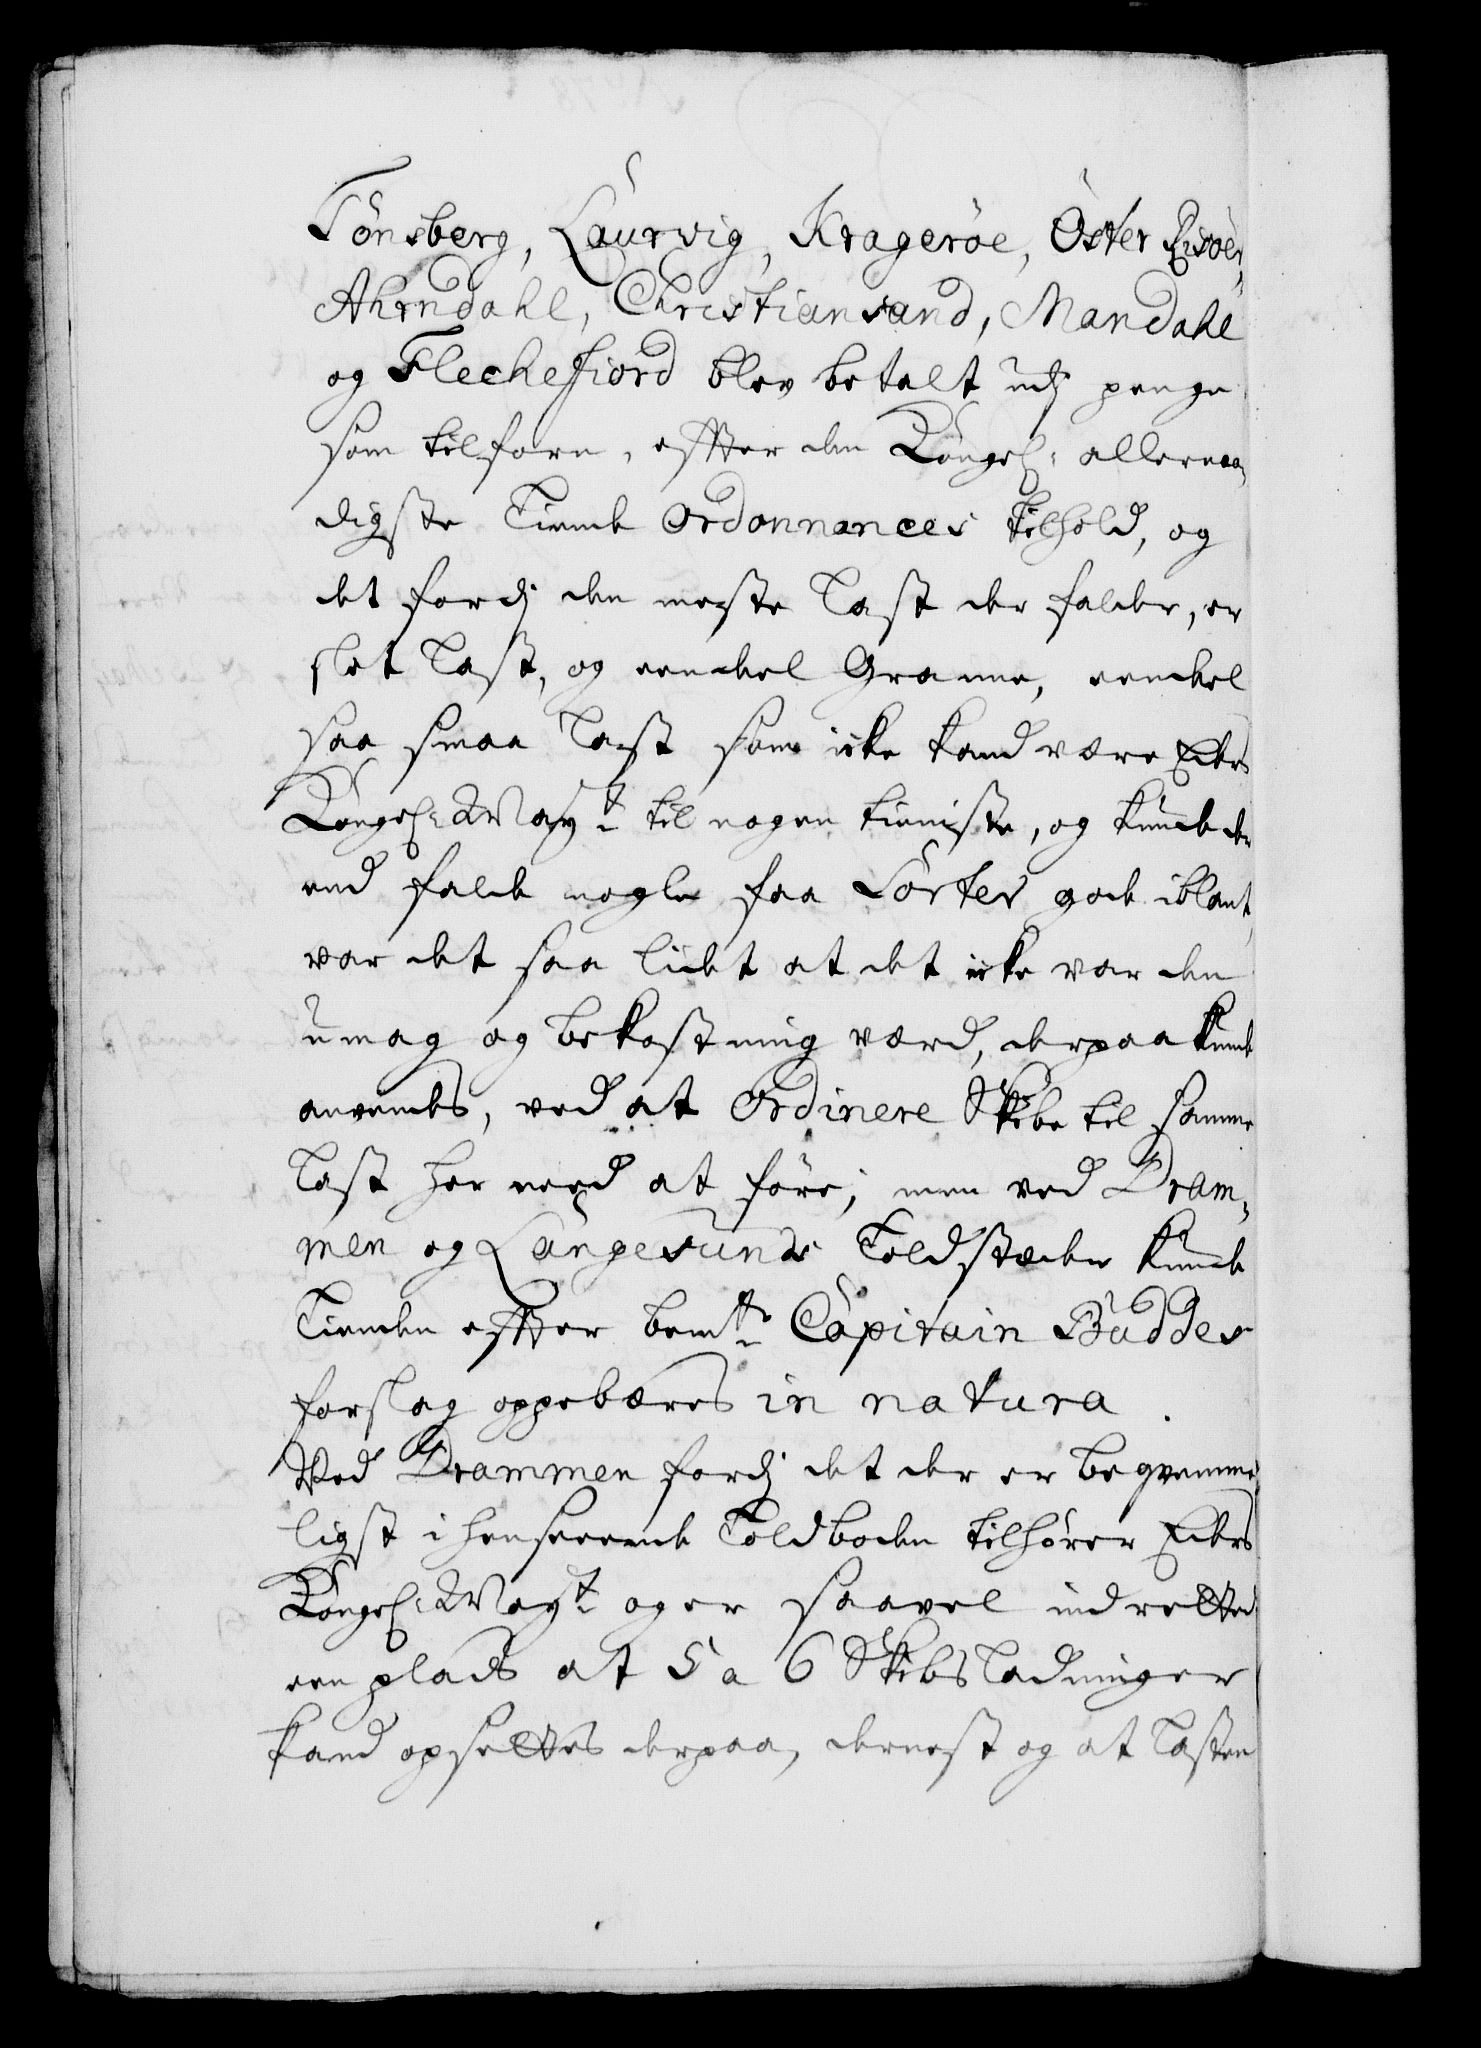 Tönsberg, Laurvig, Krageröe, Öster Risöer,
Ahrndahl, Christiansand, Mandahl
og Flechefiord blev betalt udj penge
som tilforn, effter den Kongel: allernaa,
digste Tiende Ordonnances tilhold, og
det fordj den meste last der falder, er
slet last, og eendeel Granne, eendeel
saa smaa last som icke kand være Eders
Kongel: May:t til nogen tieniste, og kunde der
end falde nogle faa Sorter gode iblant,
var det saa lidet at det icke var den
umag og bekostning værd, derpaa kunde
anvendes, ved at Ordinere Skibe til samme
last her need at före; men ved Dram,
men og Langesunds Toldstæder kunde
Tienden effter bem:te Capitain Buddes
forslag oppebæres in natura.
Ved Drammen fordj det der er beqvemme
ligst i henseende Toldboden tilhörer Eders
Kongel: May:t og er saavel indretted
een plads at 5 a 6 Skibs ladninger
kand opsettes derpaa, dernest og at lasten